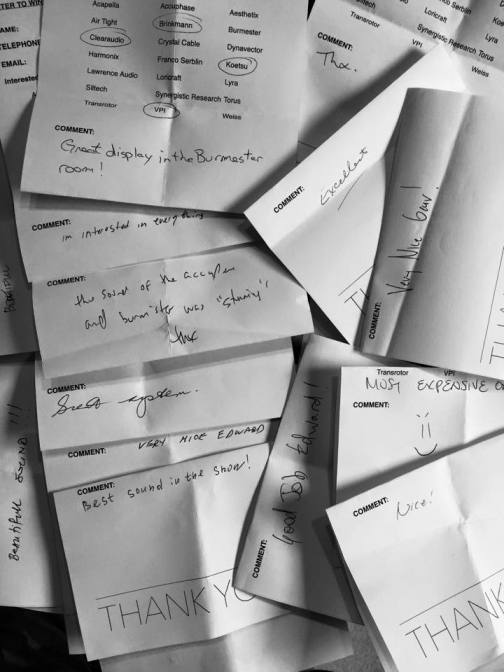 TER TO WIN
AME:
TELEPHONE
EMAIL:
Interested
Acapella
Accuphase
Aesthetix
Air Tight
Brinkmann
Burmester
Clearaudio
Crystal Cable
Dynavector
Harmonix
Franco Serblin
Koetsu
Lawrence Audio
Loricraft
Lyra
Siltech
Synergistic Research
Torus
Transrotor
VPI
Weiss
COMMENT:
Great display in the Burmester
room!
COMMENT:
im interested in everything
COMMENT:
the sound of the
and was "stunning"
thx
COMMENT:
Great system.
COMMENT:
VERY NICE EDWARD
COMMENT:
Best sound in the show!
THANK YO
Beautiful
Beautiful sound !!!
Siltech
Transrotor
Franco Serblin
Loricraft
Lyra
Synergistic Research
Torus
VPI
Weiss
COMMENT:
Thx.
COMMENT:
Excellent
COMMENT:
Very Nice
COMMENT:
Good Job Edward!
Transrotor
VPI
MOST EXPENSIVE
COMMENT:
COMMENT:
Nice!
THANK